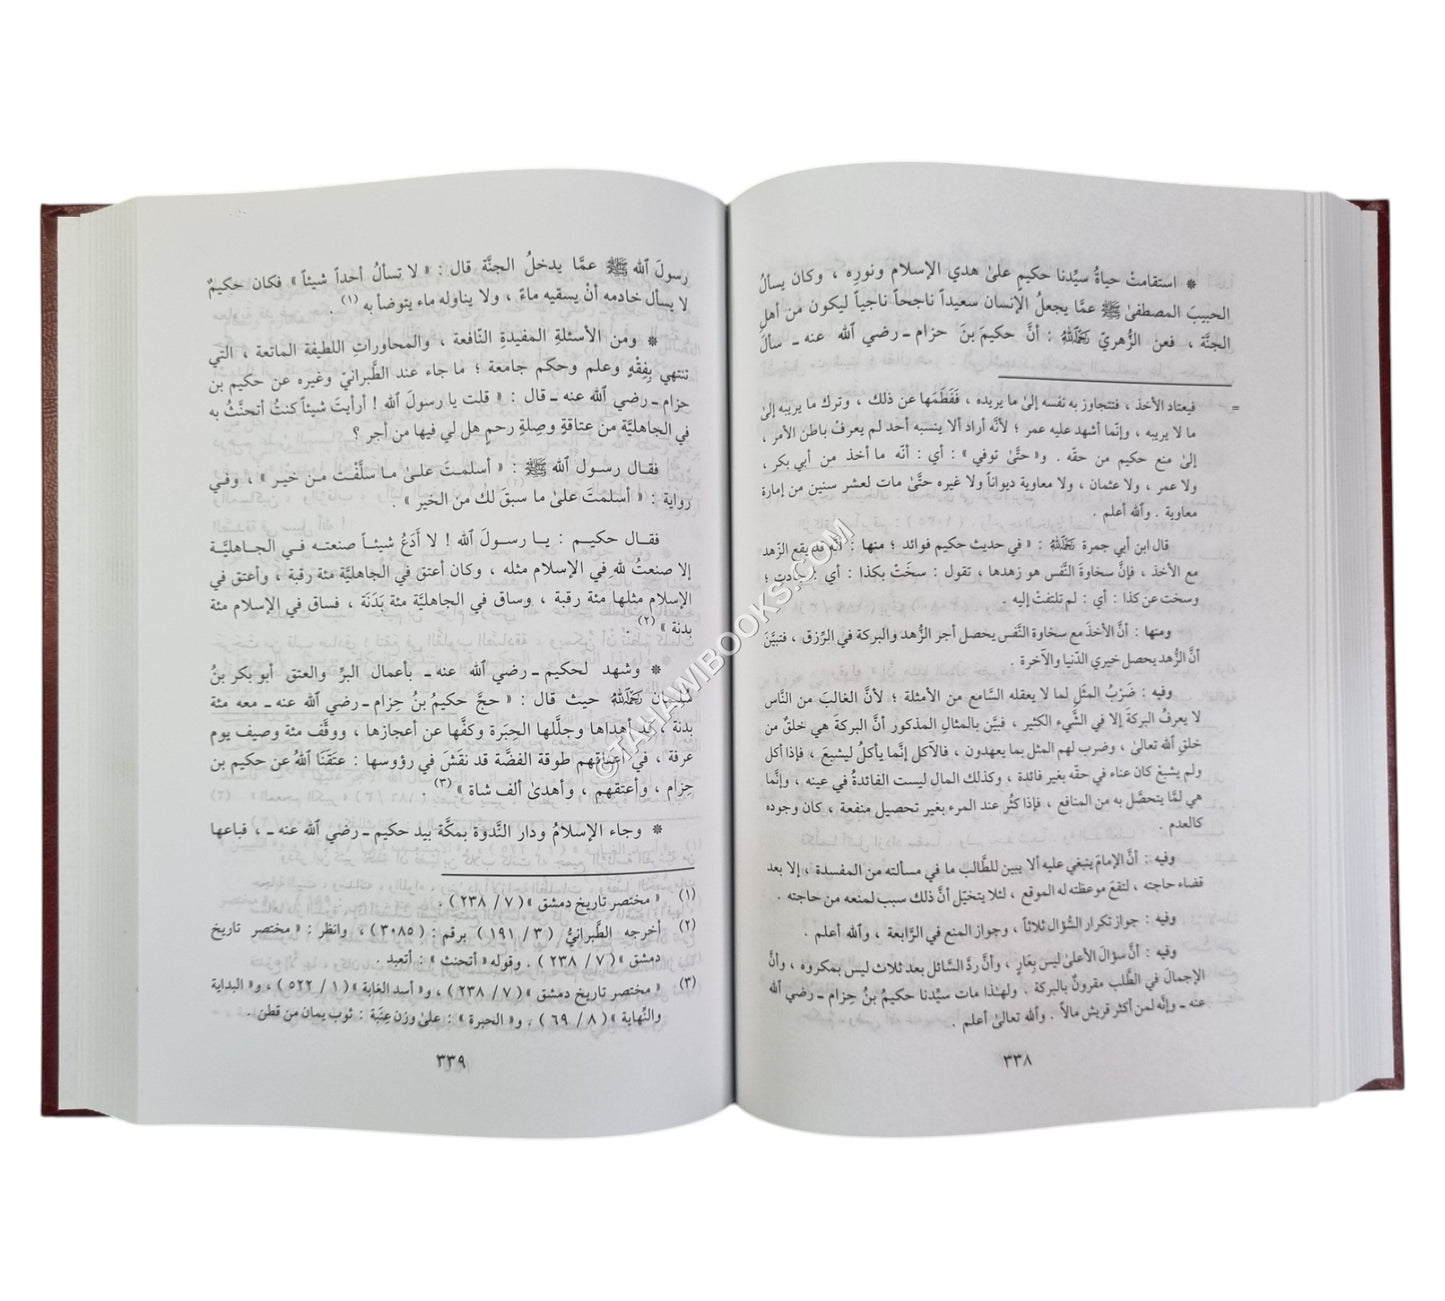 * استقامتْ حياةُ سيِّدنا حكيمٍ علىٰ هدي الإسلام ونورِه ، وكان يسألُ
الحبيبَ المصطفىٰ ﷺ عمَّا يجعلُ الإنسان سعيداً ناجحاً ناجياً ليكون من أهلِ
الجنَّة ، فعن الزُّهريّ رَحِمَهُ اللهُ : أنَّ حكيمَ بنَ حزام ـ رضي الله عنه ـ سألَ
= فيعتاد الأخذ ، فتتجاوز به نفسه إلىٰ ما يريده ، فَفَطَمَها عن ذلك ، وترك ما يريبه إلىٰ
ما لا يريبه ، وإنَّما أشهد عليه عمر ؛ لأنَّه أراد ألا ينسبه أحد لم يعرفْ باطن الأمر ،
إلىٰ منع حكيم من حقّه . و« حتَّى توفي » : أي : أنّه ما أخذ من أبي بكر ،
ولا عمر ، ولا عثمان ، ولا معاوية ديواناً ولا غيره حتَّى مات لعشر سنين من إمارة
معاوية . والله أعلم .
قال ابن أبي جمرة رَحِمَهُ اللهُ : « في حديث حكيم فوائد ؛ منها : أنَّه قد يقع الزّهد
مع الأخذ ، فإنَّ سخاوةَ النَّفس هو زهدها ، تقول : سخَتْ بكذا : أي : جادت ؛
وسخت عن كذا : أي : لم تلتفتْ إليه .
ومنها : أنَّ الأخذَ مع سخاوة النَّفس يحصل أجر الزُّهد والبركة في الرِّزق ، فتبيَّنَ
أنَّ الزُّهد يحصل خيري الدّنيا والآخرة .
وفيه : ضَرْبُ المثَلِ لما لا يعقله السَّامع من الأمثلة ؛ لأنَّ الغالبَ من النَّاس
لا يعرفُ البركةَ إلا في الشَّيء الكثير ، فبيَّن بالمثالِ المذكور أنَّ البركةَ هي خلقٌ من
خلقِ الله تعالىٰ ، وضرب لهم المثل بما يعهدون ، فالآكل إنَّما يأكلُ ليشبعَ ، فإذا أكل
ولم يشبعْ كان عناء في حقّه بغير فائدة ، وكذلك المال ليست الفائدةُ في عينه ، وإنَّما
هي لمَّا يتحصَّل به من المنافع ، فإذا كثُر عند المرء بغير تحصيل منفعة ، كان وجوده
كالعدم .
وفيه : أنَّ الإمامَ ينبغي عليه ألا يبين للطَّالب ما في مسألته من المفسدة ، إلا بعد
قضاء حاجته ، لتقعَ موعظته له الموقع ، لئلا يتخيّل أنَّ ذلك سبب لمنعه من حاجته .
وفيه : جواز تكرار السُّؤال ثلاثاً ، وجواز المنع في الرَّابعة ، والله أعلم .
وفيه : أنَّ سؤالَ الأعلىٰ ليس بِعَارٍ ، وأنَّ ردَّ السَّائل بعد ثلاث ليس بمكروه ، وأنَّ
الإجمالَ في الطَّلب مقرونٌ بالبركة . ولهٰذا مات سيِّدنا حكيمُ بنُ حِزام ـ رضي الله
عنه ـ وإنَّه لمن أكثر قريش مالاً . والله تعالىٰ أعلم .
٣٣٨
رسولَ الله ﷺ عمَّا يدخلُ الجنَّة قال : « لا تسألُ أحداً شيئاً » فكان حكيمٌ
لا يسأل خادمه أنْ يسقيه ماءً ، ولا يناوله ماء يتوضأ به (١) .
* ومن الأسئلةِ المفيدةِ النّافعة ، والمحاوراتِ اللطيفة الماتعة ، التي
تنتهي بِفِقْهٍ وعلم وحكم جامعة ؛ ما جاء عند الطَّبرانيّ وغيره عن حكيم بن
حزام ـ رضي الله عنه ـ قال : « قلت يا رسولَ الله ! أرأيتَ شيئاً كنتُ أتحنَّثُ به
في الجاهليَّة من عتاقةٍ وصِلةِ رحمٍ هل لي فيها من أجر ؟
فقال رسول الله ﷺ : « أسلمتَ علىٰ ما سلَّفْتَ من خير » ، وفي
رواية : « أسلمتَ علىٰ ما سبقَ لك من الخير » .
فقال حكيم : يا رسولَ الله ! لا أدَعُ شيئاً صنعته في الجاهليَّة
إلا صنعتُ للهِ في الإسلام مثله ، وكان أعتق في الجاهليَّة مئة رقبة ، وأعتق في
الإسلام مثلها مئة رقبة ، وساق في الجاهليَّة مئة بَدَنَة ، فساق في الإسلام مئة
بدنة » (٢) .
* وشهد لحكيم ـ رضي الله عنه ـ بأعمال البرِّ والعتق أبو بكر بنُ
سليمان رَحِمَهُ اللهُ حيث قال : « حجَّ حكيمُ بنُ حِزام ـ رضي الله عنه ـ معه مئة
بدنة ، قد أهداها وجلَّلها الحِبَرة وكفَّها عن أعجازها ، ووقَّف مئة وصيف يوم
عرفة ، في أعناقهم طوقة الفضَّة قد نقَشَ في رؤوسها : عتَقَنَا اللهُ عن حكيم بن
حِزام ، وأعتقهم ، وأهدىٰ ألف شاة » (٣) .
* وجاء الإسلامُ ودار النَّدوة بمكَّة بيد حكيم ـ رضي الله عنه ـ ، فباعها
(١) « مختصر تاريخ دمشق » ( ٧ / ٢٣٨ ) .
(٢) أخرجه الطَّبرانيُّ ( ٣ / ١٩١ ) برقم : ( ٣٠٨٥ ) ، وانظر : « مختصر تاريخ
دمشق » ( ٧ / ٢٣٨ ) . وقوله « أتحنث » : أتعبد .
(٣) « مختصر تاريخ دمشق » ( ٧ / ٢٣٨ ) ، و« أسد الغابة » ( ١ / ٥٢٢ ) ، و« البداية
والنِّهاية » ( ٨ / ٦٩ ) . و« الحبرة » : علىٰ وزن عِنَبة : ثوب يمان من قطن .
٣٣٩
©TAHAWIBOOKS.COM